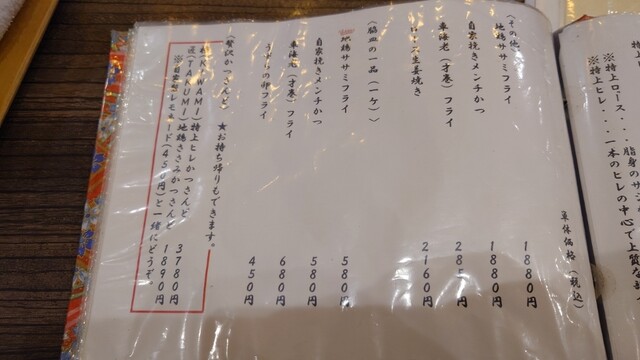 ※特上ロース・・・脂身の
※特上ヒレ・・・一本のヒレの中心で上質な
単体価格(税込)
〈その他〉
地鶏ササミフライ 1880円
自家挽きメンチかつ 1880円
車海老(才巻)フライ 285円
生姜焼き 2160円
〈脇皿の一品(一ケ)〉
地鶏ササミフライ 580円
自家挽きメンチかつ 580円
車海老(才巻)フライ 680円
の卵フライ 450円
〈贅沢かつさんど ★お持ち帰りもできます。
特上ヒレかつさんど 3780円
匠(TAKUMI)地鶏ささみかつさんど 1890円
※自家製レモネード(450円)と一緒にどうぞ。